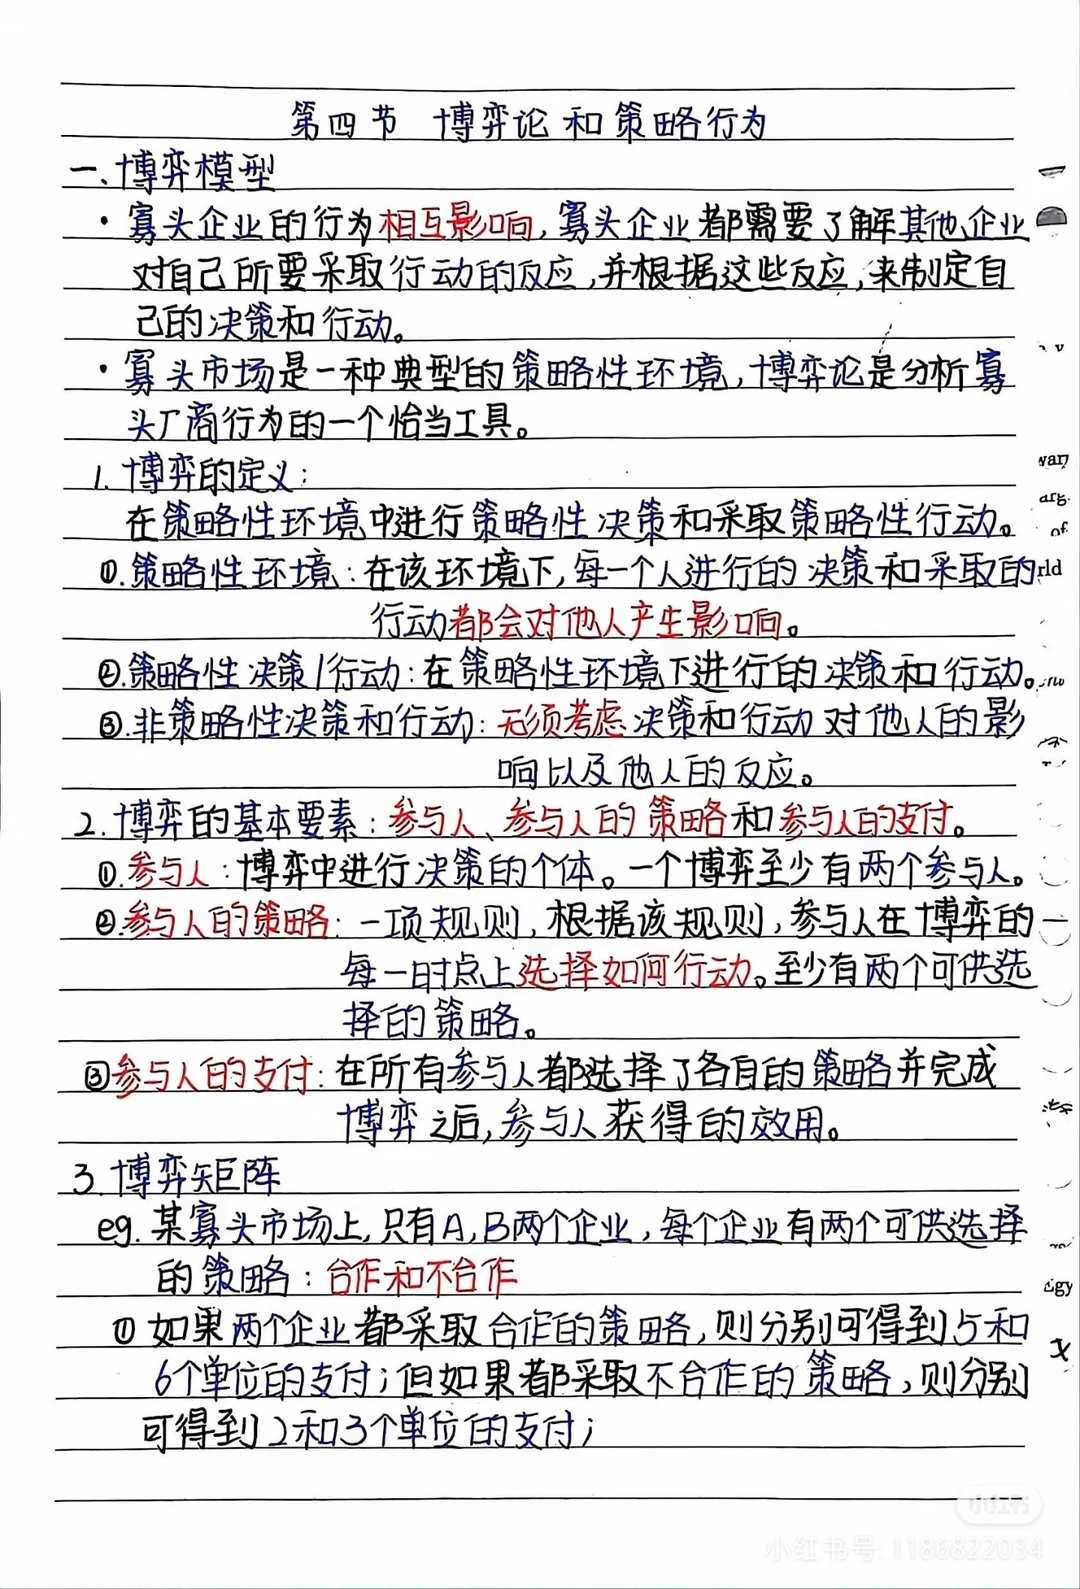 第四节 博弈论和策略行为
一、博弈模型
·寡头企业的行为相互影响,寡头企业都需要了解其他企业
对自己所要采取行动的反应,并根据这些反应,来制定自
己的决策和行动。
·寡头市场是一种典型的策略性环境,博弈论是分析寡
头厂商行为的一个恰当工具。
1.博弈的定义:
在策略性环境中进行策略性决策和采取策略性行动。
①.策略性环境:在该环境下,每一个人进行的决策和采取的
行动都会对他人产生影响。
②.策略性决策/行动:在策略性环境下进行的决策和行动。
③.非策略性决策和行动:无须考虑决策和行动对他人的影
响以及他人的反应。
2.博弈的基本要素:参与人、参与人的策略和参与人的支付。
①.参与人:博弈中进行决策的个体。一个博弈至少有两个参与人。
②.参与人的策略:一项规则,根据该规则,参与人在博弈的
每一时点上选择如何行动。至少有两个可供选
择的策略。
③参与人的支付:在所有参与人都选择了各自的策略并完成
博弈之后,参与人获得的效用。
3.博弈矩阵
eg.某寡头市场上,只有A,B两个企业,每个企业有两个可供选择
的策略:合作和不合作
①如果两个企业都采取合作的策略,则分别可得到5和
6个单位的支付;但如果都采取不合作的策略,则分别
可得到2和3个单位的支付;
小红书
小红书号:1186822034